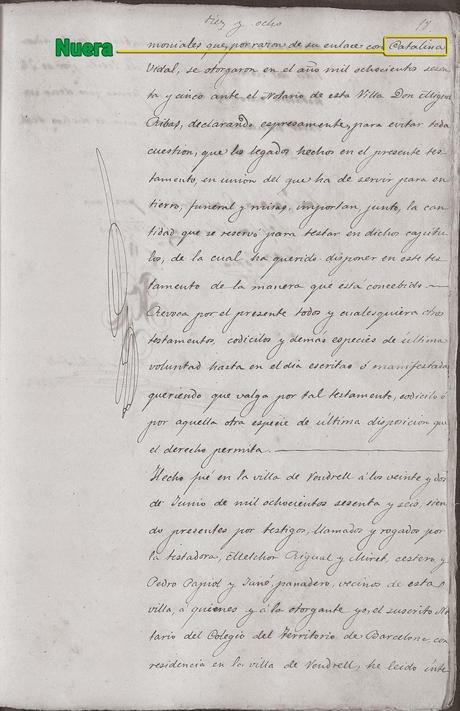 diez y ocho
Nuera
moniales que, por razon de su enlace con Catalina
Vidal, se otorgaron en el año mil ochocientos sesen
ta y cinco ante el Notario de esta Villa Don Miguel
Ribas, declarando espresamente, para evitar toda
cuestion, que los legados hechos en el presente tes-
tamento, en union del que ha de servir para en
tierro, funeral y misas, importan, junto, la can
tidad que se reservó para testar en dichos capitu
los, de la cual ha querido disponer en este tes
tamento de la manera que está concebido.
Revoca por el presente todos y cualesquiera otros
testamentos, codicilos y demás especies de última
voluntad hasta en el dia escritas ó manifestadas
queriendo que valga por tal testamento, codicilo ó
por aquella otra especie de última disposicion que
el derecho permita.
Hecho fué en la villa de Vendrell á los veinte y dos
de Junio de mil ochocientos sesenta y seis, sien
do presentes por testigos, llamados y rogados por
la testadora, Melchor Rigual y Miret, cestero, y
Pedro Papiol y Juné, panadero, vecinos de esta
villa, á quienes y á la otorgante yo, el suscrito No
tario del Colegio del Territorio de Barcelona, con
residencia en la villa de Vendrell, he leido inte